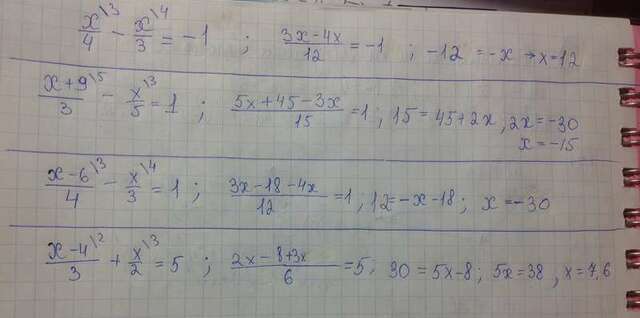 x\3/4 - x\4/3 = -1 ; (3x-4x)/12 = -1 ; -12 = -x → x=12
(x+9)\5/3 - x\3/5 = 1 ; (5x+45-3x)/15 = 1 ; 15 = 45+2x , 2x = -30
x = -15
(x-6)\3/4 - x\4/3 = 1 ; (3x-18-4x)/12 = 1 , 12 = -x-18 ; x = -30
(x-4)\2/3 + x\3/2 = 5 ; (2x-8+3x)/6 = 5 ; 30 = 5x-8 ; 5x=38 , x=7,6